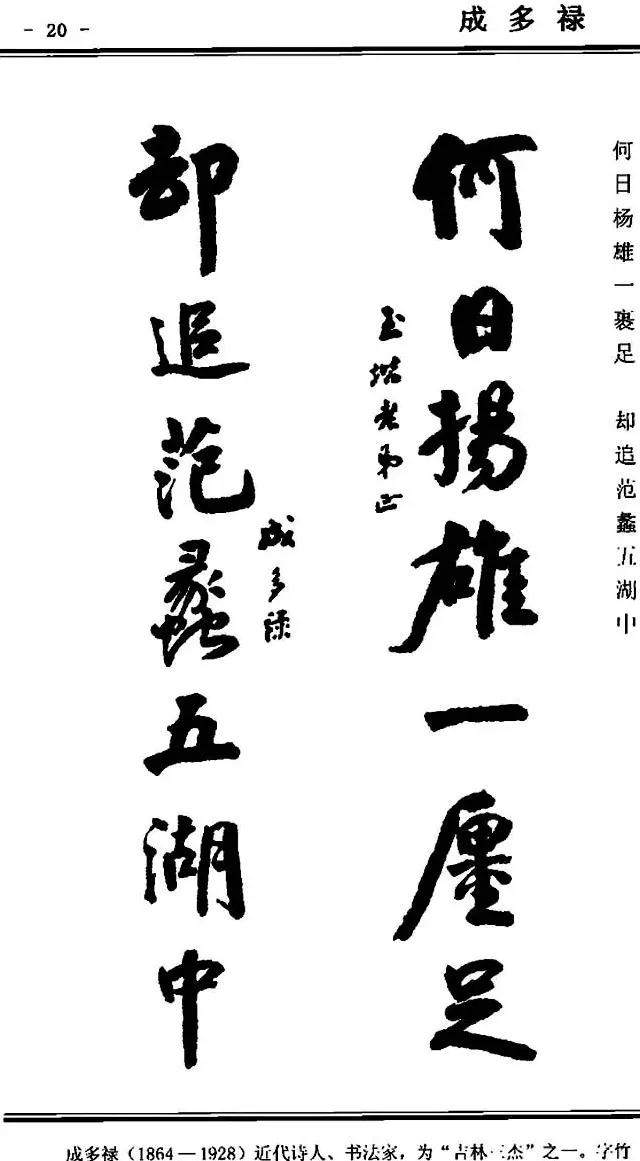 - 20 -
成多禄
何日杨雄一裹足 却追范蠡五湖中
何日揚雄一廛足
玉堦老弟正
却追范蠡五湖中
成多禄
成多禄(1864—1928)近代诗人、书法家,为“吉林三杰”之一。字竹